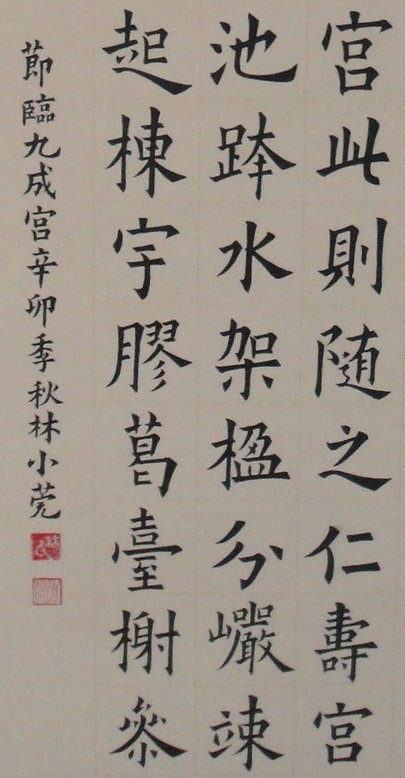 宫此則隨之仁壽宫
池跨水架楹分巖竦
起棟宇膠葛臺榭叅
節臨九成宫辛卯季秋林小莞